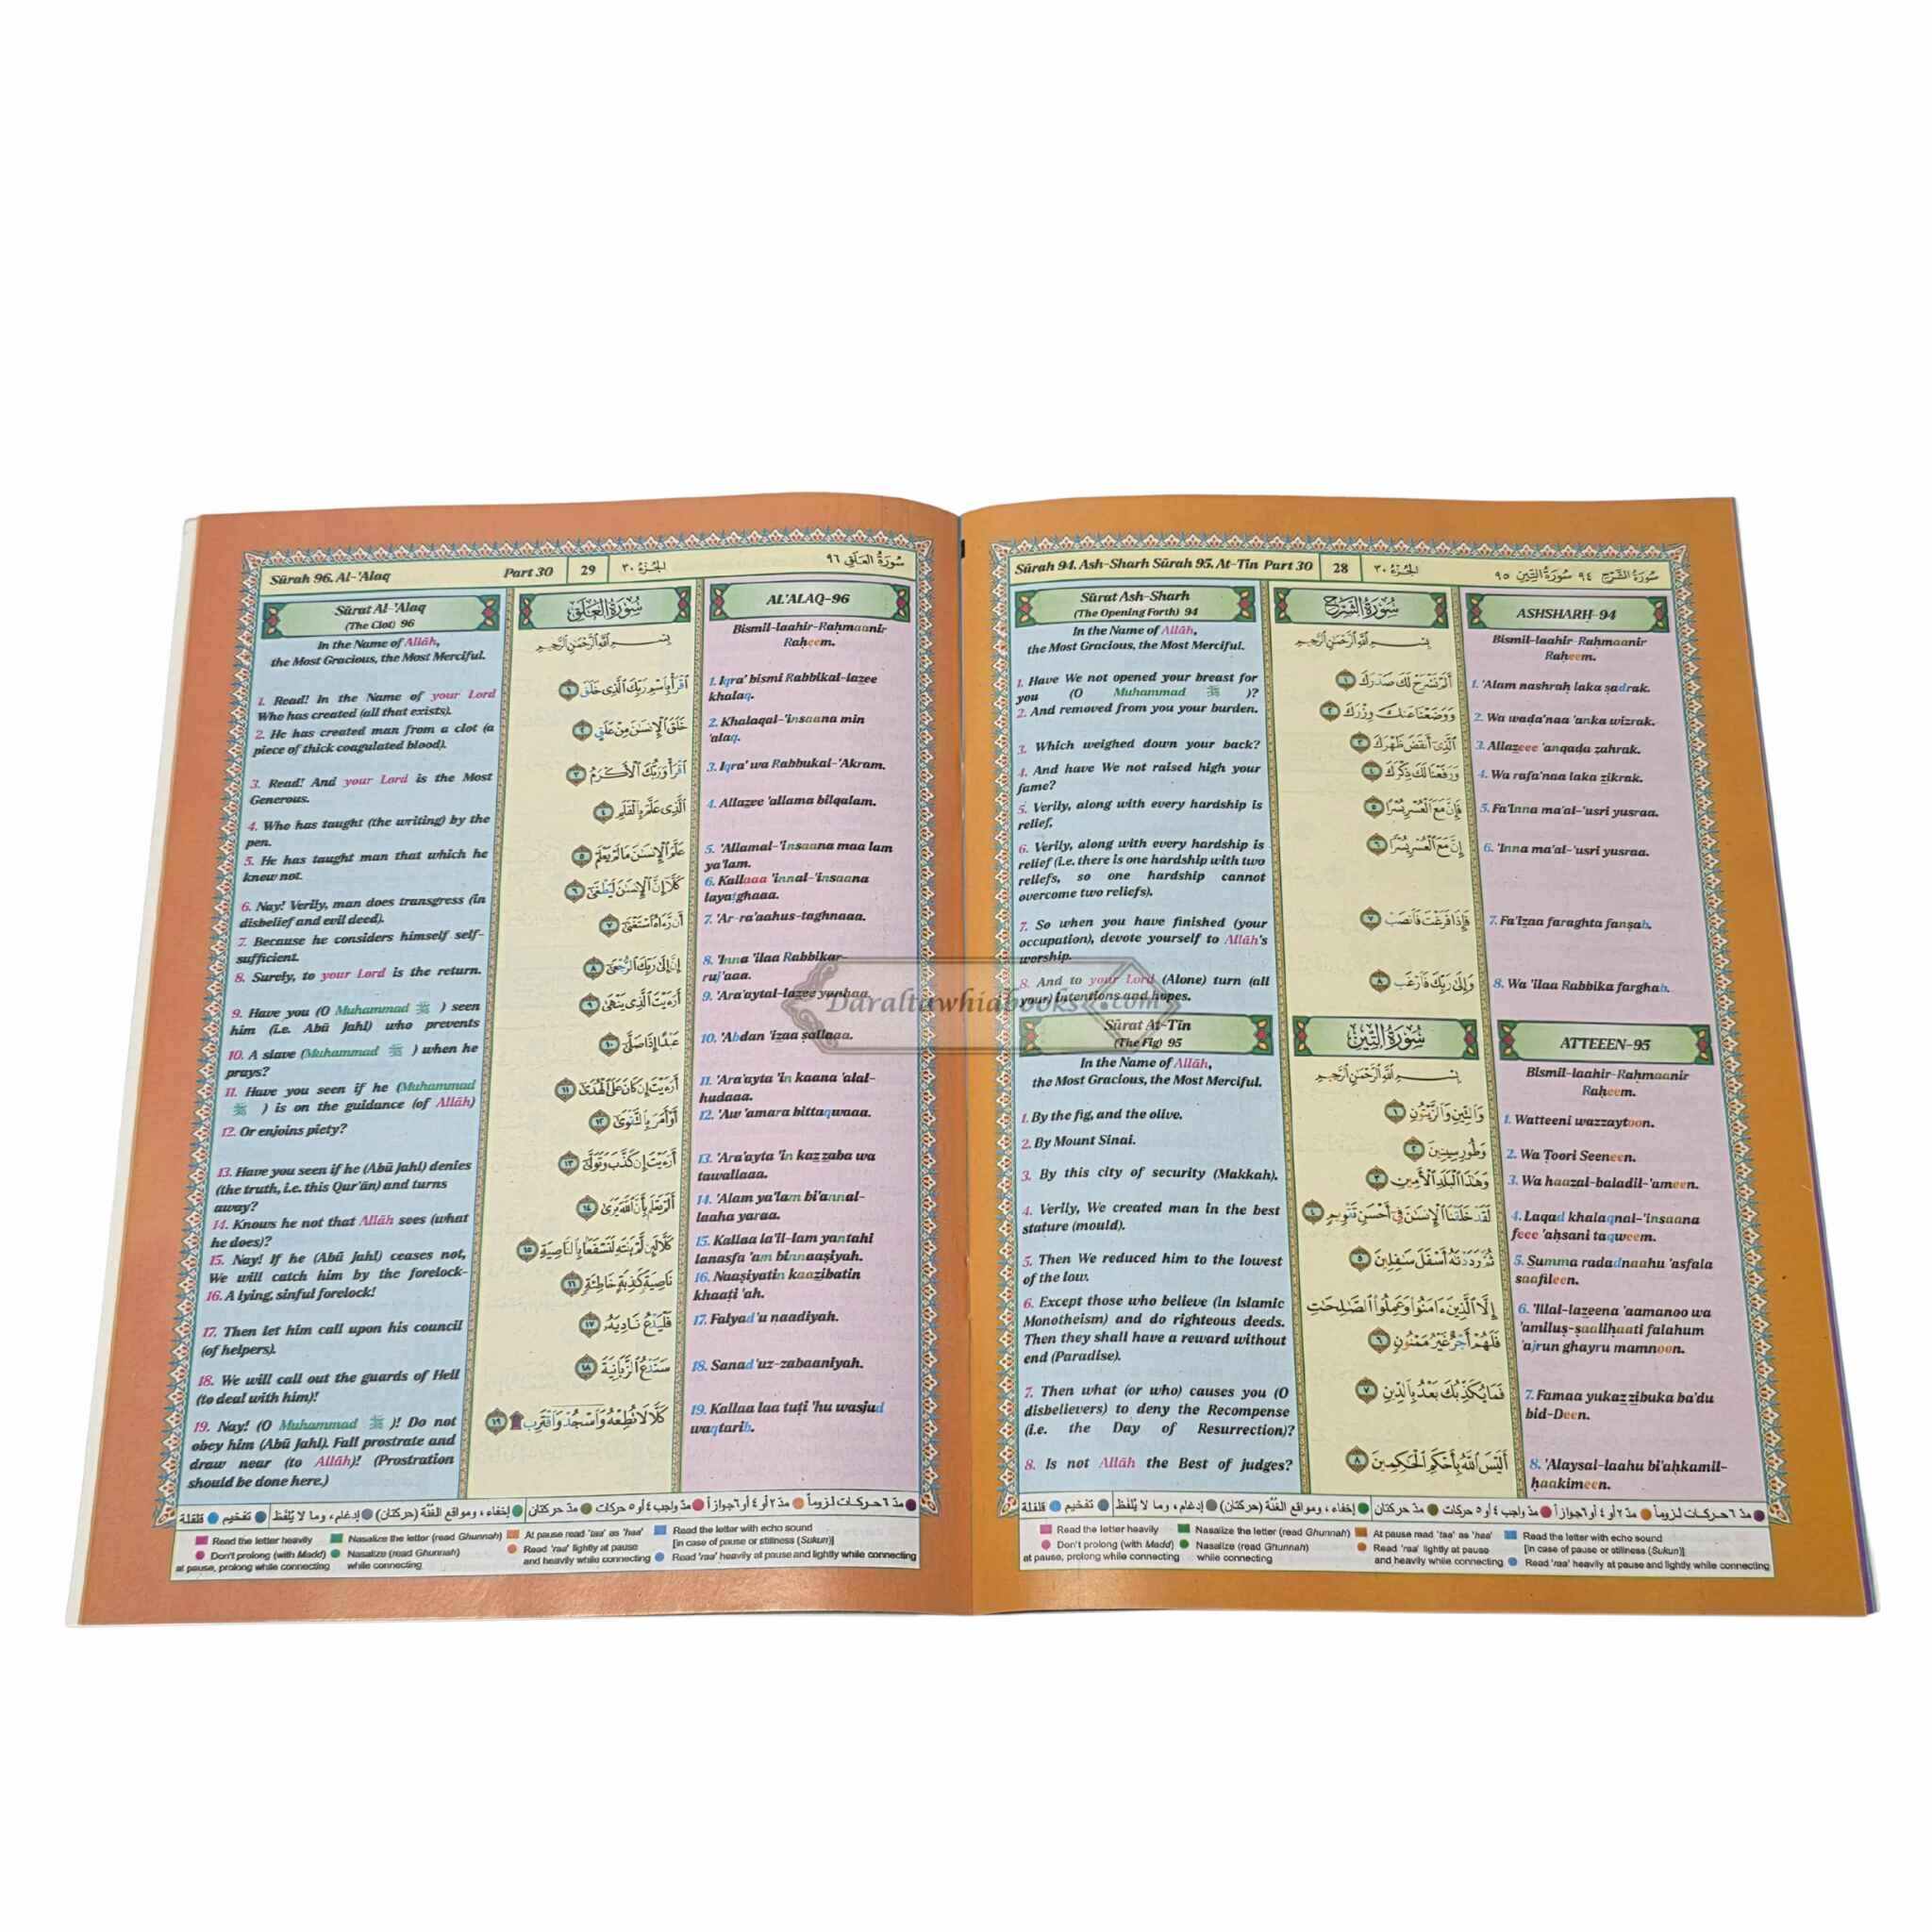 Sūrah 94. Ash-Sharh Sūrah 95. At-Tīn Part 30
28
الجزء ٣٠
سورة الشرح ٩٤ سورة التين ٩٥
Sūrat Ash-Sharh
(The Opening Forth) 94
In the Name of Allāh,
the Most Gracious, the Most Merciful.
1. Have We not opened your breast for
you (O Muhammad ﷺ )?
2. And removed from you your burden.
3. Which weighed down your back?
4. And have We not raised high your
fame?
5. Verily, along with every hardship is
relief,
6. Verily, along with every hardship is
relief (i.e. there is one hardship with two
reliefs, so one hardship cannot
overcome two reliefs).
7. So when you have finished (your
occupation), devote yourself to Allāh's
worship.
8. And to your Lord (Alone) turn (all
your) intentions and hopes.
سُورَةُ الشَّرْحِ
بِسْمِ اللَّهِ الرَّحْمَٰنِ الرَّحِيمِ
أَلَمْ نَشْرَحْ لَكَ صَدْرَكَ ١
وَوَضَعْنَا عَنكَ وِزْرَكَ ٢
ٱلَّذِىٓ أَنقَضَ ظَهْرَكَ ٣
وَرَفَعْنَا لَكَ ذِكْرَكَ ٤
فَإِنَّ مَعَ ٱلْعُسْرِ يُسْرًا ٥
إِنَّ مَعَ ٱلْعُسْرِ يُسْرًا ٦
فَإِذَا فَرَغْتَ فَٱنصَبْ ٧
وَإِلَىٰ رَبِّكَ فَٱرْغَب ٨
ASHSHARH-94
Bismil-laahir-Raḥmaanir
Raḥeem.
1. 'Alam nashraḥ laka ṣadrak.
2. Wa wada'naa 'anka wizrak.
3. Allazeee 'anqada zahrak.
4. Wa rafa'naa laka zikrak.
5. Fa'Inna ma'al-'usri yusraa.
6. 'Inna ma'al-'usri yusraa.
7. Fa'Izaa faraghta fanṣab.
8. Wa 'ilaa Rabbika farghab.
Sūrat At-Tīn
(The Fig) 95
In the Name of Allāh,
the Most Gracious, the Most Merciful.
1. By the fig, and the olive.
2. By Mount Sinai.
3. By this city of security (Makkah).
4. Verily, We created man in the best
stature (mould).
5. Then We reduced him to the lowest
of the low.
6. Except those who believe (in Islamic
Monotheism) and do righteous deeds.
Then they shall have a reward without
end (Paradise).
7. Then what (or who) causes you (O
disbelievers) to deny the Recompense
(i.e. the Day of Resurrection)?
8. Is not Allāh the Best of judges?
سُورَةُ التِّينِ
بِسْمِ اللَّهِ الرَّحْمَٰنِ الرَّحِيمِ
وَٱلتِّينِ وَٱلزَّيْتُونِ ١
وَطُورِ سِينِينَ ٢
وَهَٰذَا ٱلْبَلَدِ ٱلْأَمِينِ ٣
لَقَدْ خَلَقْنَا ٱلْإِنسَٰنَ فِىٓ أَحْسَنِ تَقْوِيمٍ ٤
ثُمَّ رَدَدْنَٰهُ أَسْفَلَ سَٰفِلِينَ ٥
إِلَّا ٱلَّذِينَ ءَامَنُوا۟ وَعَمِلُوا۟ ٱلصَّٰلِحَٰتِ
فَلَهُمْ أَجْرٌ غَيْرُ مَمْنُونٍ ٦
فَمَا يُكَذِّبُكَ بَعْدُ بِٱلدِّينِ ٧
أَلَيْسَ ٱللَّهُ بِأَحْكَمِ ٱلْحَٰكِمِينَ ٨
ATTEEEN-95
Bismil-laahir-Raḥmaanir
Raḥeem.
1. Watteeni wazzaytoon.
2. Wa Ṭoori Seeneen.
3. Wa haazal-baladil-'ameen.
4. Laqad khalaqnal-'insaana
feee 'aḥsani taqweem.
5. Summa radadnaahu 'asfala
saafileen.
6. 'Illal-lazeena 'aamanoo wa
'amiluṣ-ṣaaliḥaati falahum
'ajrun ghayru mamnoon.
7. Famaa yukazzibuka ba'du
bid-Deen.
8. 'Alaysal-laahu bi'aḥkamil-
ḥaakimeen.
مدّ ٦ حركات لزوماً مدّ ٢ أو ٤ أو ٦ جوازاً مدّ واجب ٤ أو ٥ حركات مدّ حركتان إخفاء، ومواقع الغنّة (حركتان) إدغام، وما لا يُلفَظ تفخيم قلقلة
Read the letter heavily Nasalize the letter (read Ghunnah) At pause read 'taa' as 'haa' Read the letter with echo sound
[in case of pause or stillness (Sukun)]
Don't prolong (with Madd) Nasalize (read Ghunnah) Read 'raa' lightly at pause
at pause, prolong while connecting while connecting and heavily while connecting Read 'raa' heavily at pause and lightly while connecting
Sūrah 96. Al-'Alaq
Part 30
29
الجزء ٣٠
سورة العلق ٩٦
Sūrat Al-'Alaq
(The Clot) 96
In the Name of Allāh,
the Most Gracious, the Most Merciful.
1. Read! In the Name of your Lord
Who has created (all that exists).
2. He has created man from a clot (a
piece of thick coagulated blood).
3. Read! And your Lord is the Most
Generous.
4. Who has taught (the writing) by the
pen.
5. He has taught man that which he
knew not.
6. Nay! Verily, man does transgress (in
disbelief and evil deed).
7. Because he considers himself self-
sufficient.
8. Surely, to your Lord is the return.
9. Have you (O Muhammad ﷺ ) seen
him (i.e. Abū Jahl) who prevents
10. A slave (Muhammad ﷺ ) when he
prays?
11. Have you seen if he (Muhammad
ﷺ ) is on the guidance (of Allāh)
12. Or enjoins piety?
13. Have you seen if he (Abū Jahl) denies
(the truth, i.e. this Qur'ān) and turns
away?
14. Knows he not that Allāh sees (what
he does)?
15. Nay! If he (Abū Jahl) ceases not,
We will catch him by the forelock-
16. A lying, sinful forelock!
17. Then let him call upon his council
(of helpers).
18. We will call out the guards of Hell
(to deal with him)!
19. Nay! (O Muhammad ﷺ )! Do not
obey him (Abū Jahl). Fall prostrate and
draw near (to Allāh)! (Prostration
should be done here.)
سُورَةُ العَلَقِ
بِسْمِ اللَّهِ الرَّحْمَٰنِ الرَّحِيمِ
ٱقْرَأْ بِٱسْمِ رَبِّكَ ٱلَّذِى خَلَقَ ١
خَلَقَ ٱلْإِنسَٰنَ مِنْ عَلَقٍ ٢
ٱقْرَأْ وَرَبُّكَ ٱلْأَكْرَمُ ٣
ٱلَّذِى عَلَّمَ بِٱلْقَلَمِ ٤
عَلَّمَ ٱلْإِنسَٰنَ مَا لَمْ يَعْلَمْ ٥
كَلَّآ إِنَّ ٱلْإِنسَٰنَ لَيَطْغَىٰٓ ٦
أَن رَّءَاهُ ٱسْتَغْنَىٰٓ ٧
إِنَّ إِلَىٰ رَبِّكَ ٱلرُّجْعَىٰٓ ٨
أَرَءَيْتَ ٱلَّذِى يَنْهَىٰ ٩
عَبْدًا إِذَا صَلَّىٰٓ ١٠
أَرَءَيْتَ إِن كَانَ عَلَى ٱلْهُدَىٰٓ ١١
أَوْ أَمَرَ بِٱلتَّقْوَىٰٓ ١٢
أَرَءَيْتَ إِن كَذَّبَ وَتَوَلَّىٰٓ ١٣
أَلَمْ يَعْلَم بِأَنَّ ٱللَّهَ يَرَىٰ ١٤
كَلَّا لَئِن لَّمْ يَنتَهِ لَنَسْفَعًۢا بِٱلنَّاصِيَةِ ١٥
نَاصِيَةٍ كَٰذِبَةٍ خَاطِئَةٍ ١٦
فَلْيَدْعُ نَادِيَهُۥ ١٧
سَنَدْعُ ٱلزَّبَانِيَةَ ١٨
كَلَّا لَا تُطِعْهُ وَٱسْجُدْ وَٱقْتَرِب ۩ ١٩
AL'ALAQ-96
Bismil-laahir-Raḥmaanir
Raḥeem.
1. Iqra' bismi Rabbikal-lazee
khalaq.
2. Khalaqal-'insaana min
'alaq.
3. Iqra' wa Rabbukal-'Akram.
4. Allazee 'allama bilqalam.
5. 'Allamal-'insaana maa lam
ya'lam.
6. Kallaaa 'innal-'insaana
layaṭghaaa.
7. 'Ar-ra'aahus-taghnaaa.
8. 'Inna 'ilaa Rabbikar-
ruj'aaa.
9. 'Ara'aytal-lazee yanhaa.
10. 'Abdan 'izaa ṣallaaa.
11. 'Ara'ayta 'in kaana 'alal-
hudaaa.
12. 'Aw 'amara bittaqwaaa.
13. 'Ara'ayta 'in kazzaba wa
tawallaaa.
14. 'Alam ya'lam bi'annal-
laaha yaraa.
15. Kallaa la'il-lam yantahi
lanasfa 'am binnaaṣiyah.
16. Naaṣiyatin kaazibatin
khaaṭi 'ah.
17. Falyad'u naadiyah.
18. Sanad'uz-zabaaniyah.
19. Kallaa laa tuṭi 'hu wasjud
waqtarib.
مدّ ٦ حركات لزوماً مدّ ٢ أو ٤ أو ٦ جوازاً مدّ واجب ٤ أو ٥ حركات مدّ حركتان إخفاء، ومواقع الغنّة (حركتان) إدغام، وما لا يُلفَظ تفخيم قلقلة
Read the letter heavily Nasalize the letter (read Ghunnah) At pause read 'taa' as 'haa' Read the letter with echo sound
[in case of pause or stillness (Sukun)]
Don't prolong (with Madd) Nasalize (read Ghunnah) Read 'raa' lightly at pause
at pause, prolong while connecting while connecting and heavily while connecting Read 'raa' heavily at pause and lightly while connecting
Daraltawhiabooks.com